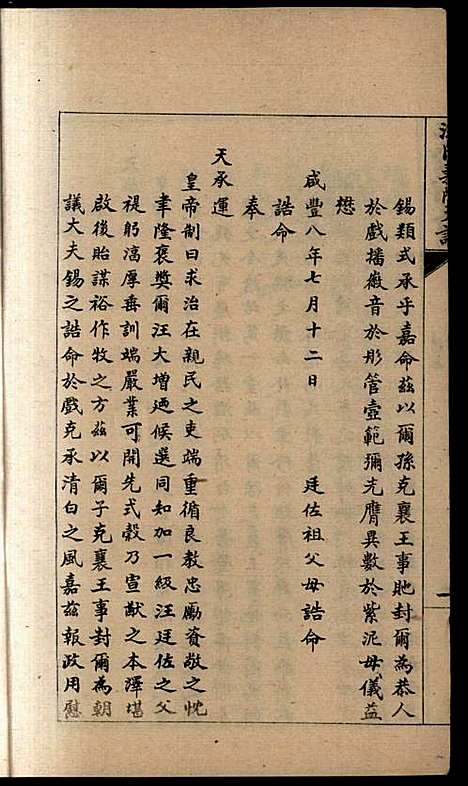 錫類式承乎嘉命茲以爾孫克襄王事貤封爾為恭人
於戲播徽音於彤管壼範彌光膺異數於紫泥母儀益
懋
咸豐八年七月十二日　廷佐祖父母誥命
誥命
奉
天承運
皇帝制曰求治在親民之吏端重循良教忠勵資敬之忱
聿隆褒獎爾汪大增迺候選同知加一級汪廷佐之父
褆躬湻厚垂訓端嚴業可開先式穀乃宣猷之本澤堪
啟後貽謀裕作牧之方茲以爾子克襄王事封爾為朝
議大夫錫之誥命於戲克承清白之風嘉茲報政用慰